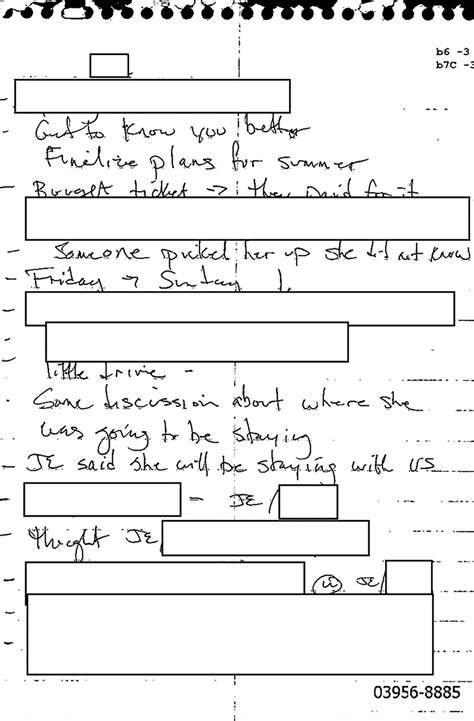 b6 -3
b7C -3
Get to know you better
Finalize plans for summer
Bought ticket → they paid for it
- Someone picked her up she did not know
- Friday → Sunday
little time -
- Some discussion about where she
was going to be staying
- JE said she will be staying with us
- JE/
- thought JE
JE/
03956-8885